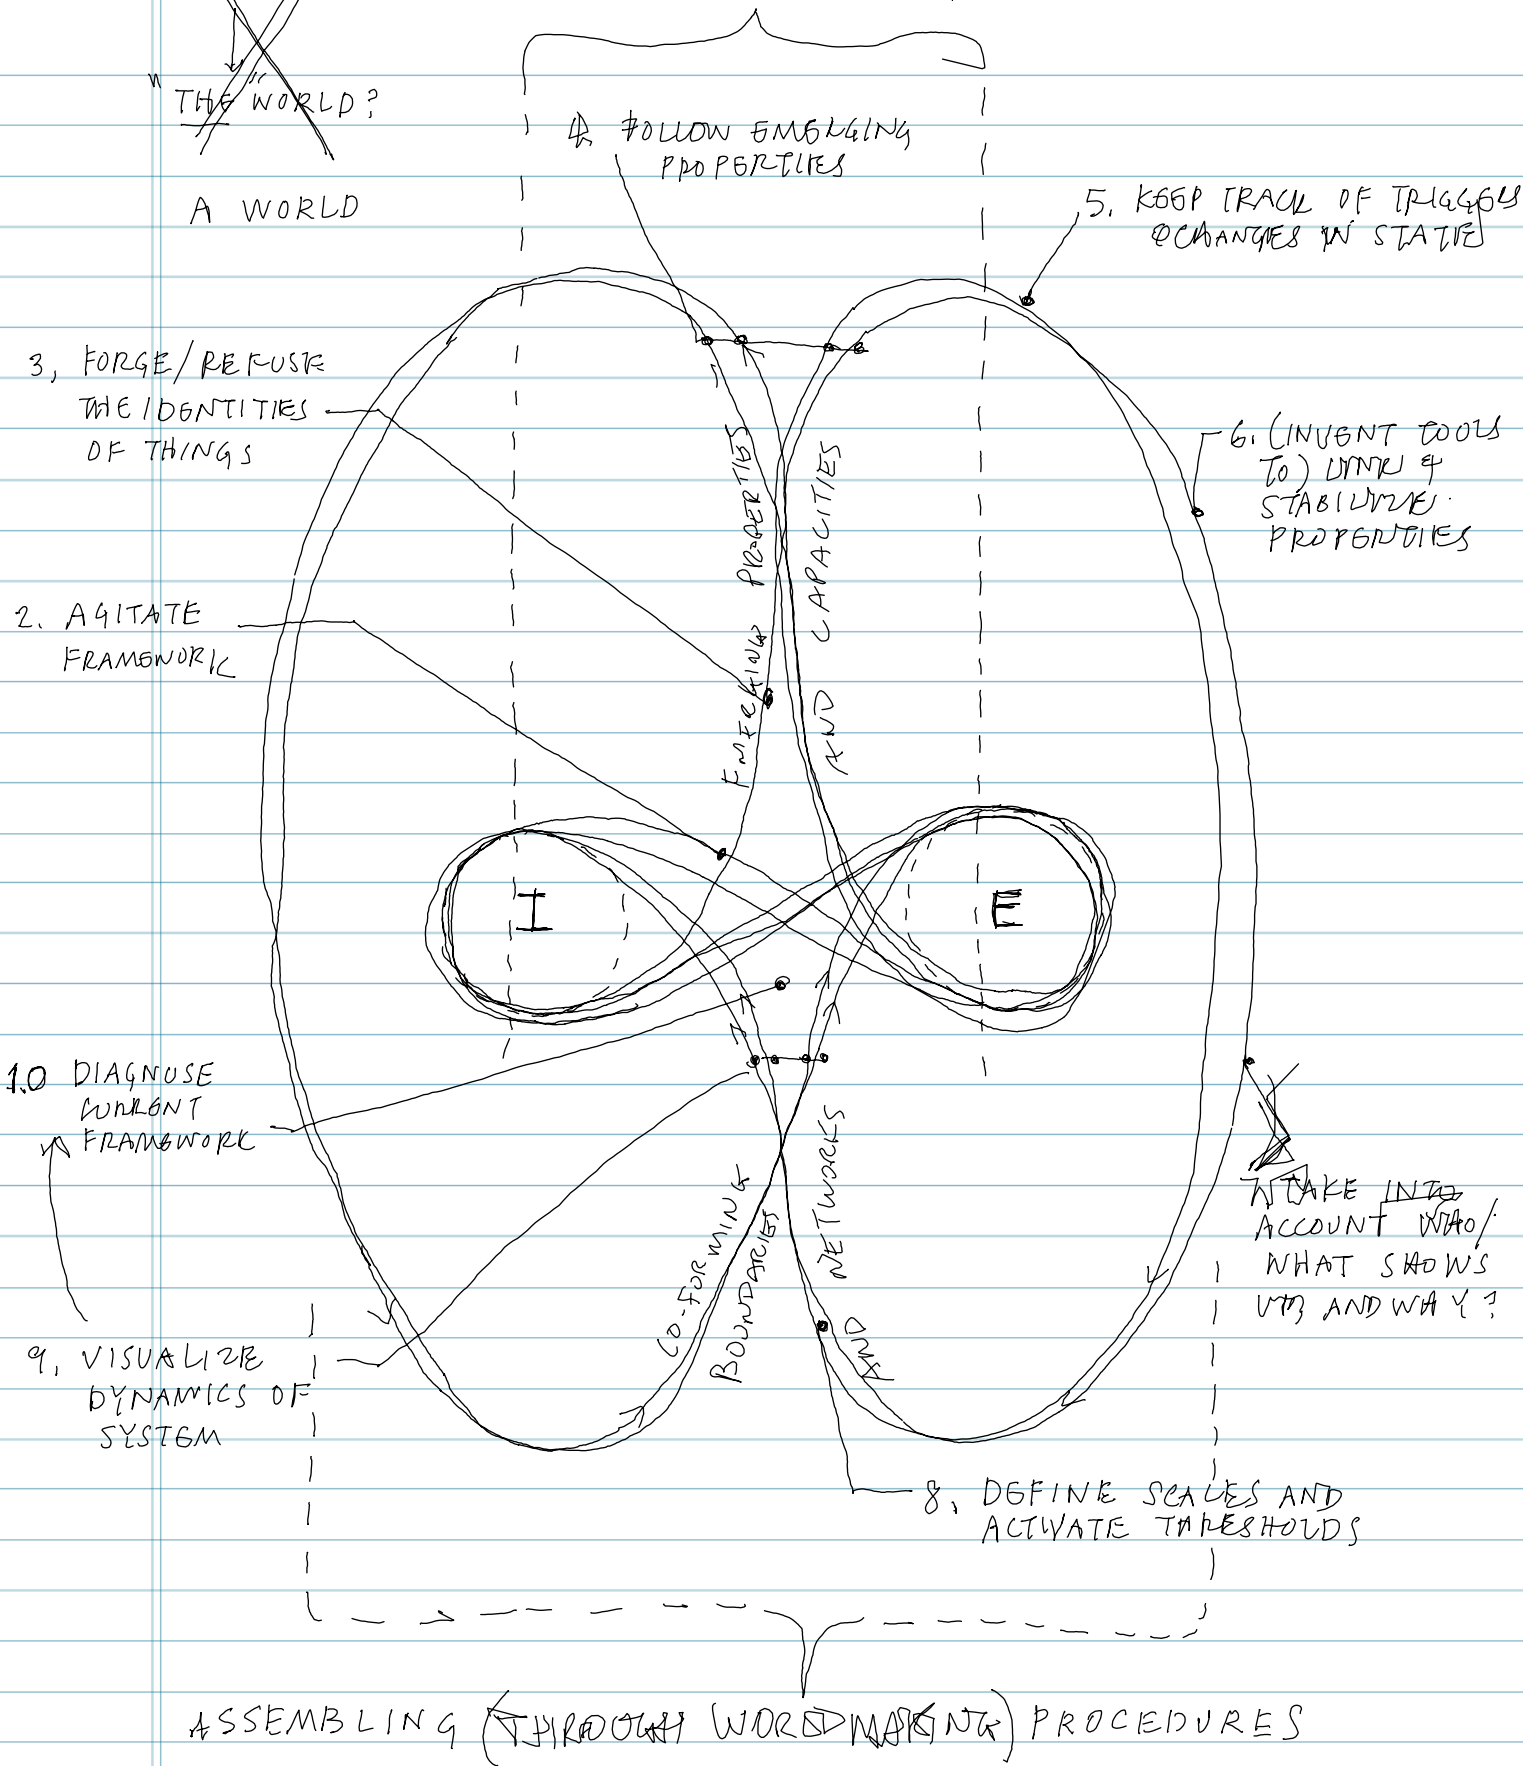 "THE" WORLD?
A WORLD
4. FOLLOW EMERGING
PROPERTIES
5. KEEP TRACK OF TRIGGERS
& CHANGES IN STATE
3, FORGE/REFUSE
THE IDENTITIES
OF THINGS
6. (INVENT TOOLS
TO) LINK &
STABILIZE
PROPERTIES
2. AGITATE
FRAMEWORK
EMERGING PROPERTIES
AND CAPACITIES
I
E
1.0 DIAGNOSE
CURRENT
FRAMEWORK
TAKE INTO
ACCOUNT WHO/
WHAT SHOWS
UP AND WHY?
CO-FORMING
BOUNDARIES
AND NETWORKS
9, VISUALIZE
DYNAMICS OF
SYSTEM
8, DEFINE SCALES AND
ACTIVATE THRESHOLDS
ASSEMBLING (THROUGH WORLDMAKING) PROCEDURES